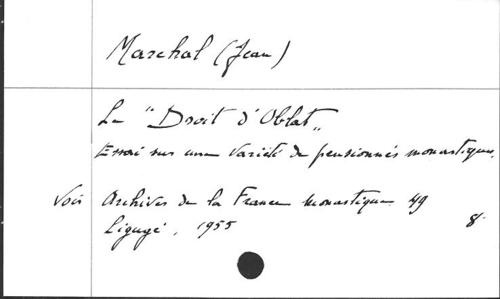 Marchal (Jean)
Le "Droit d'Oblat"
Essai sur une variété de pensionnés monastiques.
Voir Archives de la France monastique 49
Ligugé, 1955 8°